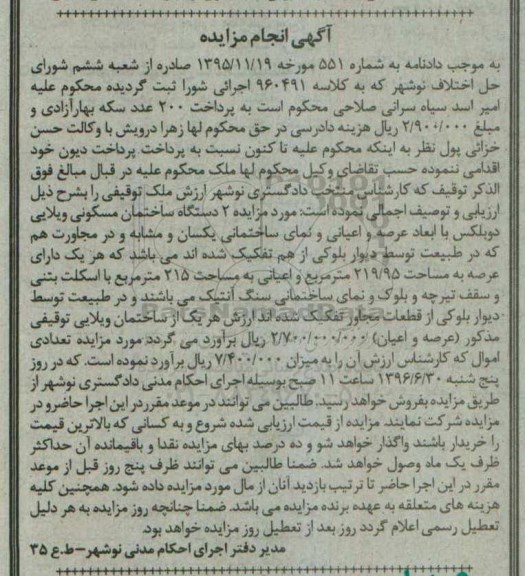 آگهی انجام مزایده
به موجب دادنامه به شماره ۵۵۱ مورخه ۱۳۹۵/۱۱/۱۹ صادره از شعبه ششم شورای
حل اختلاف نوشهر که به کلاسه ۹۶۰۴۹۱ اجرائی شورا ثبت گردیده محکوم علیه
امیر اسد سپاه سرانی صلاحی محکوم است به پرداخت ۲۰۰ عدد سکه بهارآزادی و
مبلغ ۲/۹۰۰/۰۰۰ ریال هزینه دادرسی در حق محکوم لها زهرا درویش با وکالت حسن
خزائی پول نظر به اینکه محکوم علیه تا کنون نسبت به پرداخت پرداخت دیون خود
اقدامی ننموده حسب تقاضای وکیل محکوم لها ملک محکوم علیه در قبال مبالغ فوق
الذکر توقیف که کارشناس منتخب دادگستری نوشهر ارزش ملک توقیفی را بشرح ذیل
ارزیابی و توصیف اجمالی نموده است: مورد مزایده ۲ دستگاه ساختمان مسکونی ویلایی
دوبلکس با ابعاد عرصه و اعیانی و نمای ساختمانی یکسان و مشابه و در مجاورت هم
که در طبیعت توسط دیوار بلوکی از هم تفکیک شده اند می باشد که هر یک دارای
عرصه به مساحت ۲۱۹/۹۵ مترمربع و اعیانی به مساحت ۲۱۵ مترمربع با اسکلت بتنی
و سقف تیرچه و بلوک و نمای ساختمانی سنگ آنتیک می باشند و در طبیعت توسط
دیوار بلوکی از قطعات مجاور تفکیک شده اند ارزش هر یک از ساختمان ویلایی توقیفی
مذکور (عرصه و اعیان) ۲/۷۰۰/۰۰۰/۰۰۰ ریال برآورد می گردد مورد مزایده تعدادی
اموال که کارشناس ارزش آن را به میزان ۷/۴۰۰/۰۰۰ ریال برآورد نموده است. که در روز
پنج شنبه ۱۳۹۶/۶/۳۰ ساعت ۱۱ صبح بوسیله اجرای احکام مدنی دادگستری نوشهر از
طریق مزایده بفروش خواهد رسید. طالبین می توانند در موعد مقرر در این اجرا حاضر و در
مزایده شرکت نمایند. مزایده از قیمت ارزیابی شده شروع و به کسانی که بالاترین قیمت
را خریدار باشند واگذار خواهد شو و ده درصد بهای مزایده نقدا و باقیمانده آن حداکثر
ظرف یک ماه وصول خواهد شد. ضمنا طالبین می توانند ظرف پنج روز قبل از موعد
مقرر در این اجرا حاضر تا ترتیب بازدید آنان از مال مورد مزایده داده شود. همچنین کلیه
هزینه های متعلقه به عهده برنده مزایده می باشد. ضمنا چنانچه روز مزایده به هر دلیل
تعطیل رسمی اعلام گردد روز بعد از تعطیل روز مزایده خواهد بود.
مدیر دفتر اجرای احکام مدنی نوشهر-ط.ع ۳۵